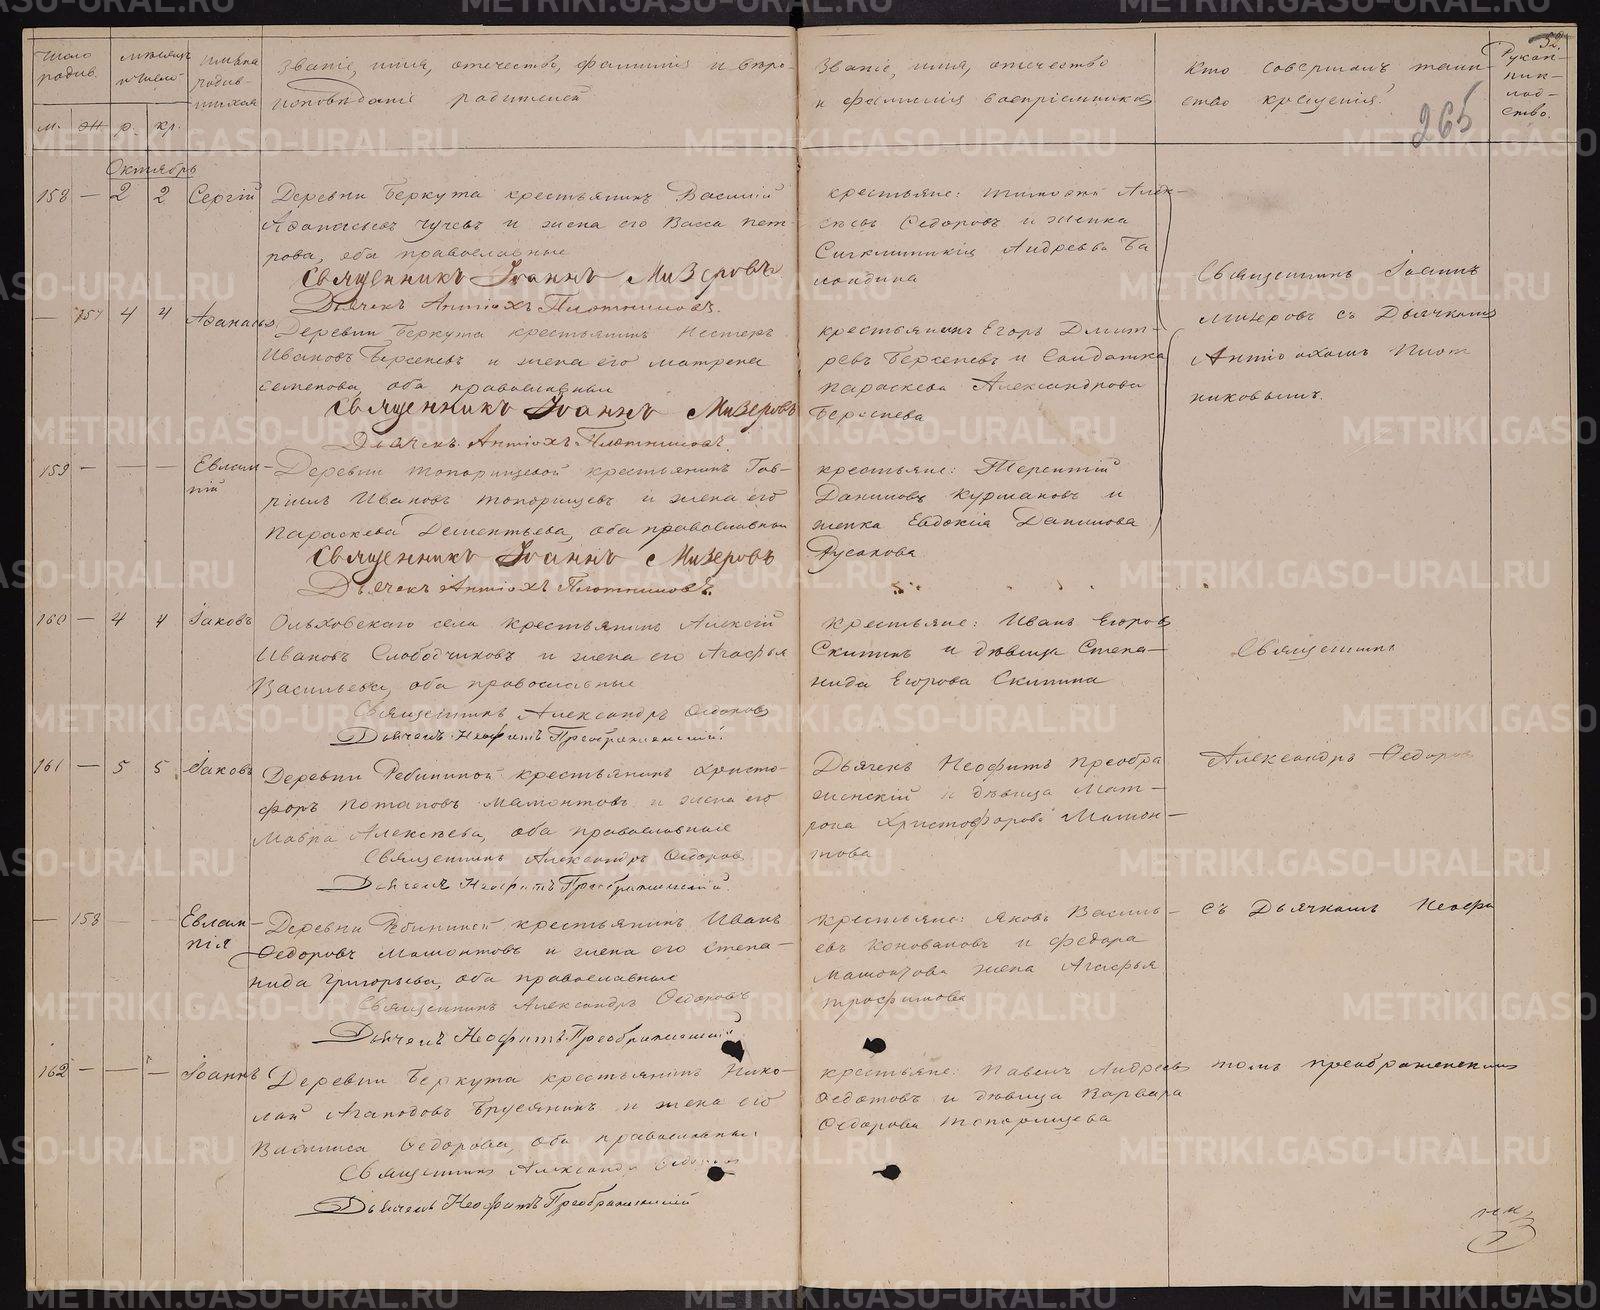 Число родив.
мѣсяцъ и число
имена родив-шихся
Званіе, имя, отечество, фамилія и вѣро-
исповѣданіе родителей
Званіе, имя, отечество
и фамилія воспріемниковъ
Кто совершалъ таин-
ство крещенія?
Рукоп-
52.
265
м. ж. р. кр.
Октябрь
158 — 2 2 Сергій Деревни Беркута крестьянинъ Василій
Афанасьевъ Чучевъ и жена его Васса Пет
рова, оба православные
Священникъ Іоаннъ Мизеровъ
Дьячекъ Антіохъ Плотниковъ.
крестьяне: Тимофей Алек-
сѣевъ Ѳедоровъ и женка
Андреева Ба
ландина
Священникъ Іоаннъ
Мизеровъ съ Дьячкомъ
Антіохомъ Плот
никовымъ.
— 157 4 4 Афанасья
Деревни Беркута крестьянинъ Нестеръ
Ивановъ Берсеневъ и жена его Матрена
Семенова, оба православные
Священникъ Іоаннъ Мизеровъ
Дьячекъ Антіохъ Плотниковъ.
крестьянинъ Егоръ Дмит-
ревъ Берсеневъ и Солдатка
Параскева Александрова
Берснева
159 — — — Евлам-
пій
Деревни Топорищевой крестьянинъ Гав-
ріилъ Ивановъ Топорищевъ и жена его
Параскева Дементьева, оба православные
Священникъ Іоаннъ Мизеровъ
Дьячекъ Антіохъ Плотниковъ.
крестьяне: Терентій
Даниловъ Курмановъ и
женка Евдокія Данилова
Русакова
160 — 4 4 Іаковъ Ольховскаго села крестьянинъ Алексій
Ивановъ Слободчиковъ и жена его Агафья
Васильева, оба православные
Священникъ Александръ Ѳедоровъ
Дьячекъ Неофитъ Преображенскій.
крестьяне: Иванъ Егоровъ
Скипинъ и дѣвица Степа-
нида Егорова Скипина
Священникъ
161 — 5 5 Іаковъ Деревни Рябининой крестьянинъ Христо-
форъ Потаповъ Мамонтовъ и жена его
Мавра Алексѣева, оба православные
Священникъ Александръ Ѳедоровъ
Дьячекъ Неофитъ Преображенскій.
Дьячекъ Неофитъ Преобра
женскій и дѣвица Мат-
рона Христофорова Мамон-
това
Александръ Ѳедоров
— 158 — — Евлам-
пія
Деревни Рябининой крестьянинъ Иванъ
Ѳедоровъ Мамонтовъ и жена его Степа-
нида Григорьева, оба православные
Священникъ Александръ Ѳедоровъ
Дьячекъ Неофитъ Преображенскій
крестьяне: Яковъ Василь-
евъ Коноваловъ и Федора
Мамонтова жена Агафья
Трофимова
съ Дьячкомъ Неофи
162 — — — Іоаннъ Деревни Беркута крестьянинъ Нико-
лай Агаподовъ Брусянинъ и жена его
Ѳедорова, оба православные
Священникъ Александръ Ѳедоровъ
Дьячекъ Неофитъ Преображенскій
крестьяне: Павелъ Андреевъ
Ѳедотовъ и дѣвица Варвара
Ѳедорова Топорищева
томъ Преображенскимъ
METRIKI.GASO-URAL.RU